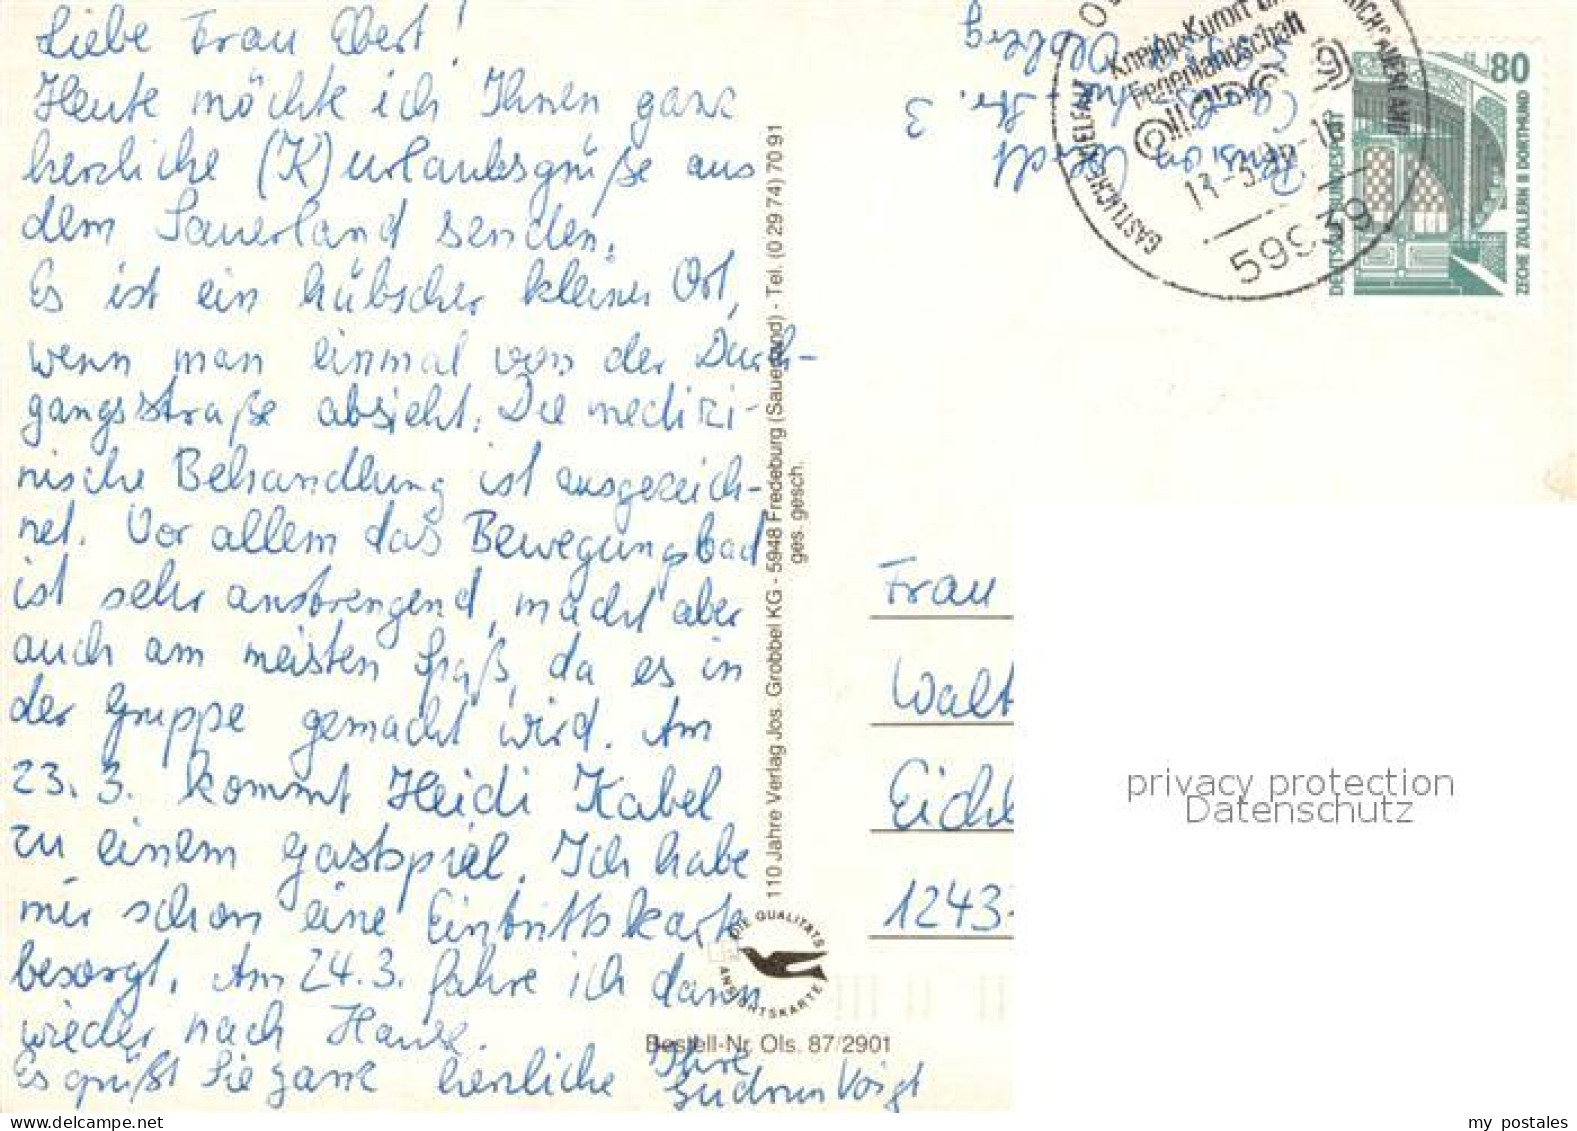 Liebe Frau Ebert!
Heute möchte ich Ihnen ganz
herzliche (K)urlaubsgrüße aus
dem Sauerland senden.
Es ist ein hübscher kleiner Ort,
wenn man einmal von der Durch-
gangsstraße absieht. Die medizi-
nische Behandlung ist ausgezeich-
net. Vor allem das Bewegungsbad
ist sehr anstrengend, macht aber
auch am meisten Spaß, da es in
der Gruppe gemacht wird. Am
23.3. kommt Heidi Kabel
zu einem Gastspiel. Ich habe
mir schon eine Eintrittskarte
besorgt. Am 24.3. fahre ich dann
wieder nach Hause.
Es grüßt Sie ganz herzliche Ihre
Gudrun Voigt
110 Jahre Verlag Jos. Grobbel KG - 5948 Fredeburg (Sauerland) - Tel. (0 29 74) 70 91
ges. gesch.
DIE QUALITÄTS
ANSICHTSKARTE
Bestell-Nr. Ols. 87/2901
Pension
Str. 3
Olsberg
Kneipp-Kurort
Ferienlandschaft
Olsberg
59939
80
DEUTSCHE BUNDESPOST
ZECHE ZOLLERN II DORTMUND
Frau
Walt
Eich
1243
privacy protection
Datenschutz
my postales